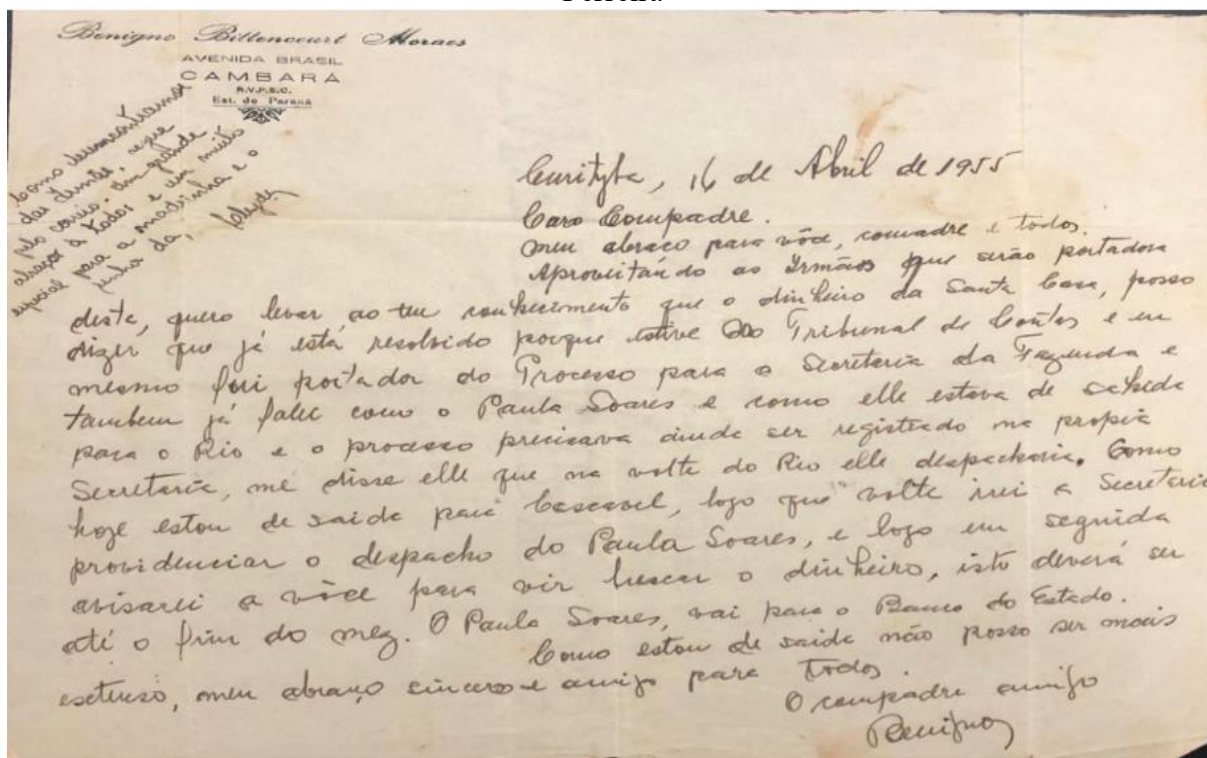 Benigno Bittencourt Moraes
AVENIDA BRASIL
CAMBARÁ
R.V.P.S.C.
Est. do Paraná
Como
das, segue
pelo correio, um grande
abraço à todos e um muito
especial para a madrinha e o
da,
Curityba, 16 de Abril de 1955
Caro Compadre.
Meu abraço para vôce, comadre e todos.
Aproveitando as Irmãos que serão portadora
deste, quero levar ao teu conhecimento que o dinheiro da Santa Casa, posso
dizer que já está resolvido porque estive no Tribunal de Contas e eu
mesmo fui portador do Processo para a Secretaria da Fazenda e
tambem já falei como o Paula Soares e como elle estava de sahida
para o Rio e o processo precisava ainda ser registrado na propia
Secretaria, me disse elle que na volta do Rio elle despacharia. Como
hoje estou de saida para Cascavel, logo que volte irei a Secretaria
providenciar o despacho do Paula Soares, e logo em seguida
avisarei a vôce para vir buscar o dinheiro, isto deverá ser
até o fim do mez. O Paula Soares, vai para o Banco do Estado.
Como estou de saida não posso ser mais
extenso, meu abraço sincero e amigo para todos.
O compadre amigo
Benigno